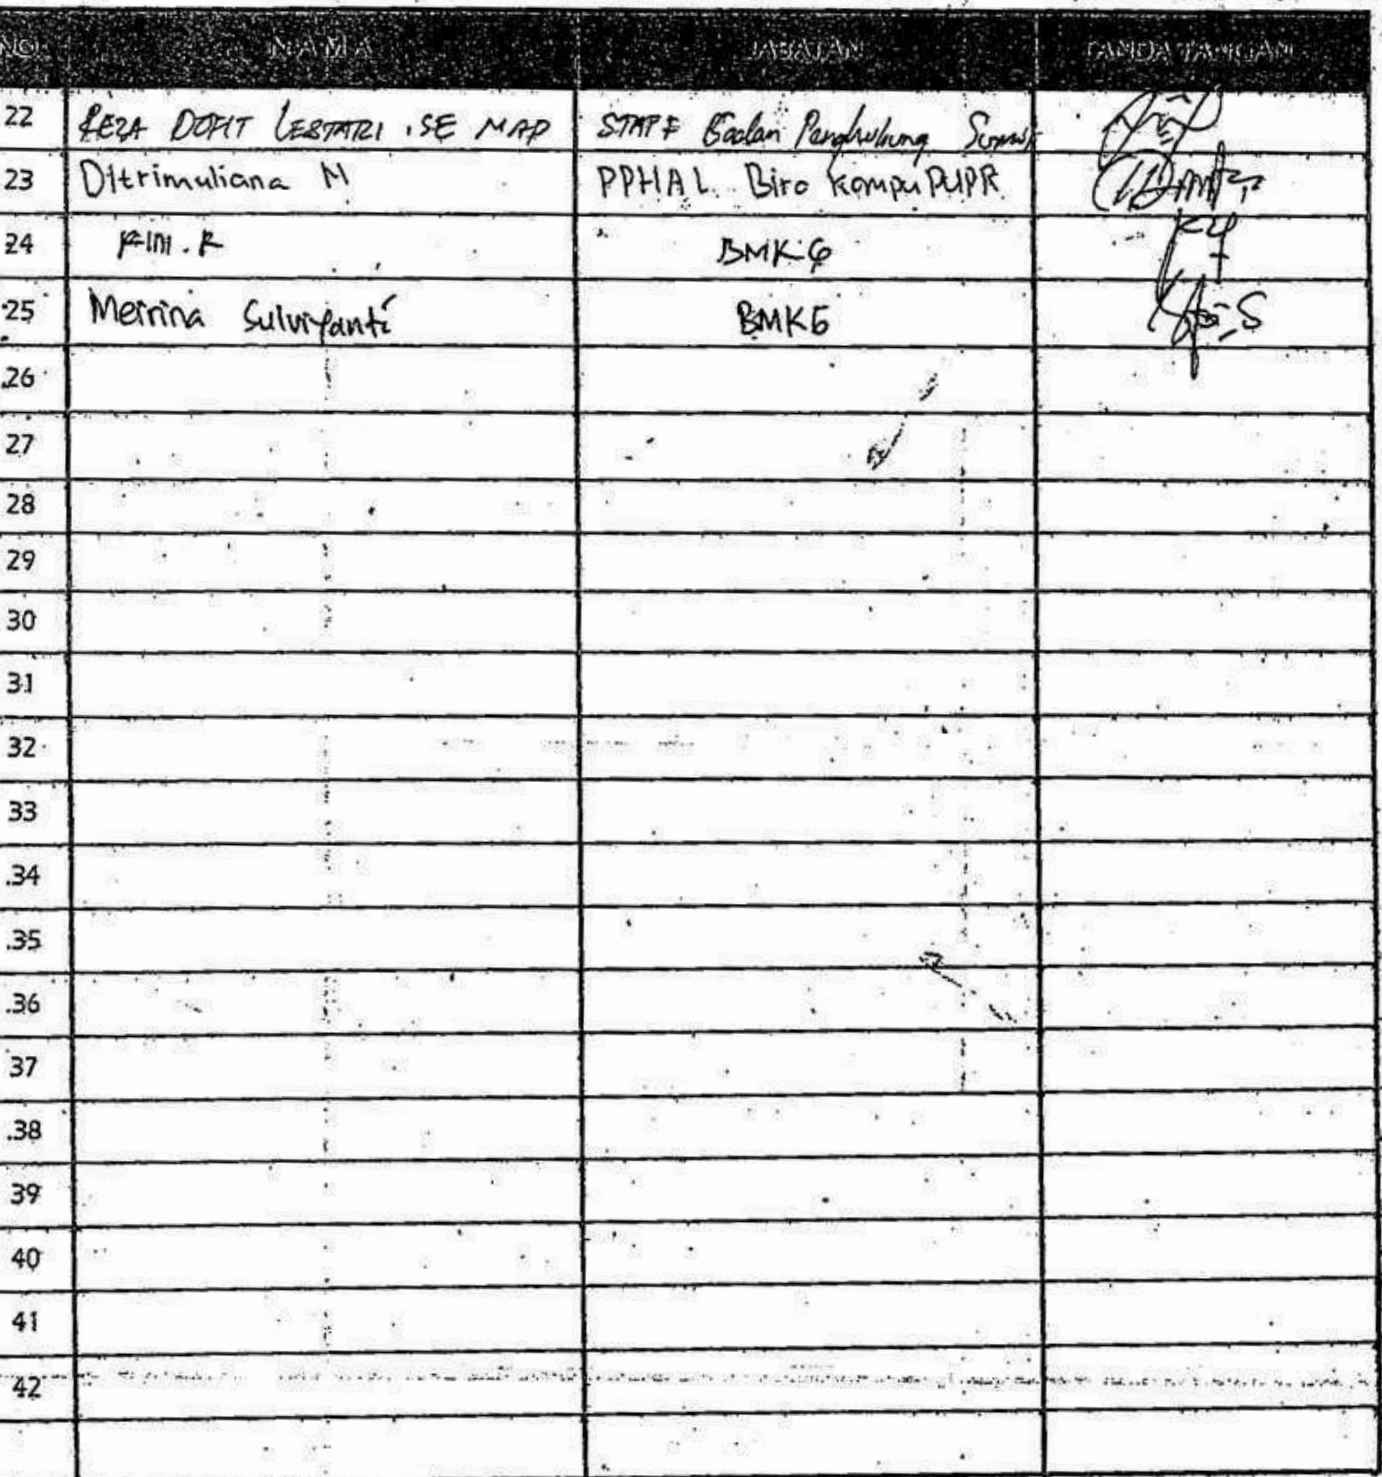 NO. NAMA JABATAN TANDA TANGAN
22 REZA DOFIT LESTARI .SE MAP STAFF Badan Penghubung
23 Ditrimuliana M PPHAL Biro Kompu PUPR
24 BMKG
25 Meirina Sulviyanti BMKG
26
27
28
29
30
31
32
33
34
35
36
37
38
39
40
41
42